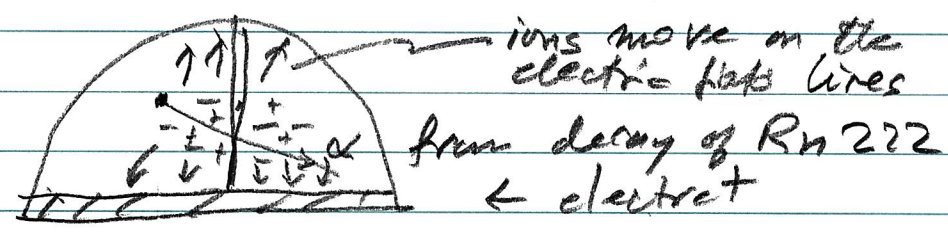 ions move on the
electric field lines
α from decay of Rn 222
← electret